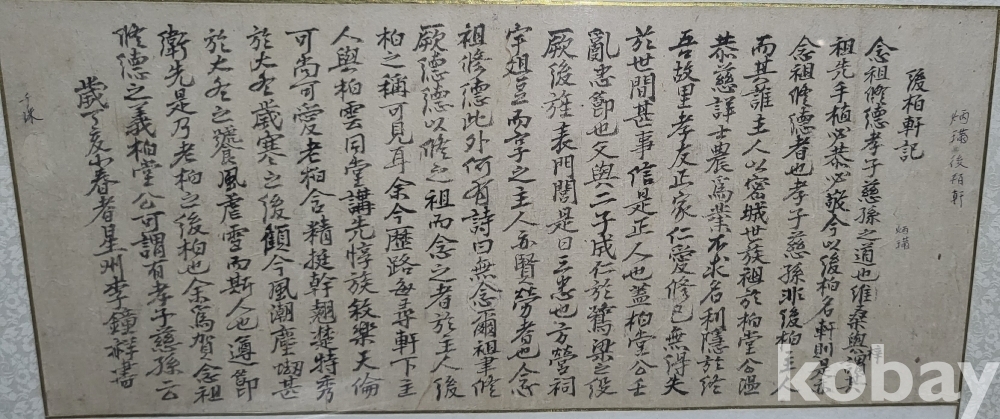 後柏軒記
念祖修德孝子慈孫之道也維桑與梓
祖先手植必恭必敬今以後柏名軒則是
念祖修德者也孝子慈孫非後柏主人
而其誰主人以密城世族祖於柏堂公溫
恭慈詳士農爲業不求名利隱於終
吾故里孝友正家仁愛修己無得失
於世間甚事信是正人也蓋柏堂公壬
亂忠節也父與二子成仁於鷺梁之役
厥後旌表門閭是曰三忠也方營祠
宇俎豆而宇之主人亦賢勞者也念
祖修德此外何有詩曰無念爾祖聿修
厥德德以修之祖而念之者於主人後
柏之稱可見耳余今歷路每尋軒下主
人與柏雲同堂講先惇族敘樂天倫
可尚可愛老柏含精挺幹翹楚特秀
於大冬歲寒之後顧今風潮塵坳甚
於大冬之饕風虐雪而斯人也遵節
衛先是乃老柏之後柏也余爲賀念祖
修德之義柏堂公可謂有孝子慈孫云
歲丁亥小春者星州李鐘祥書
炳璊 後栢軒
炳璊
kobay